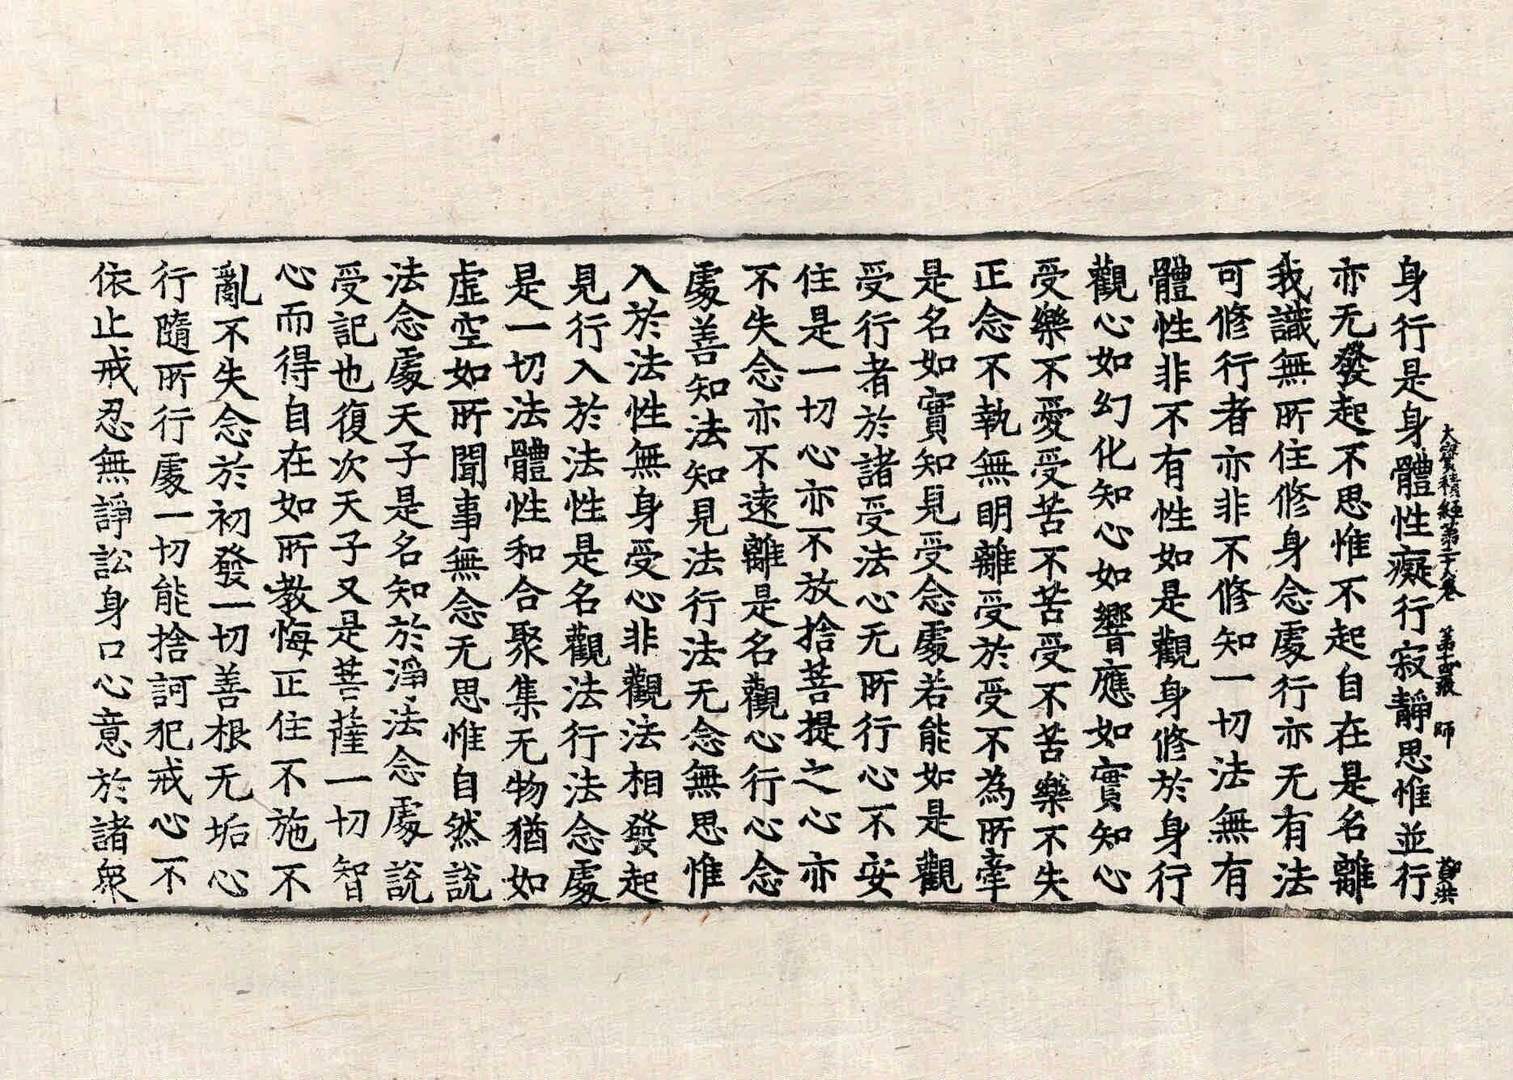 大寶積經第二十八卷 第十四張 師 鄭洪
身行是身體性癡行寂靜思惟並行
亦无發起不思惟不起自在是名離
我識無所住修身念處行亦无有法
可修行者亦非不修知一切法無有
體性非不有性如是觀身修於身行
觀心如幻化知心如響應如實知心
受樂不愛受苦不苦受不苦樂不失
正念不執無明離受於受不為所牽
是名如實知見受念處若能如是觀
受行者於諸受法心无所行心不安
住是一切心亦不放捨菩提之心亦
不失念亦不遠離是名觀心行心念
處善知法知見法行法无念無思惟
入於法性無身受心非觀法相發起
見行入於法性是名觀法行法念處
是一切法體性和合聚集无物猶如
虛空如所聞事無念无思惟自然說
法念處天子是名知於淨法念處說
受記也復次天子又是菩薩一切智
心而得自在如所教悔正住不施不
亂不失念於初發一切善根无垢心
行隨所行處一切能捨訶犯戒心不
依止戒忍無諍訟身口心意於諸衆